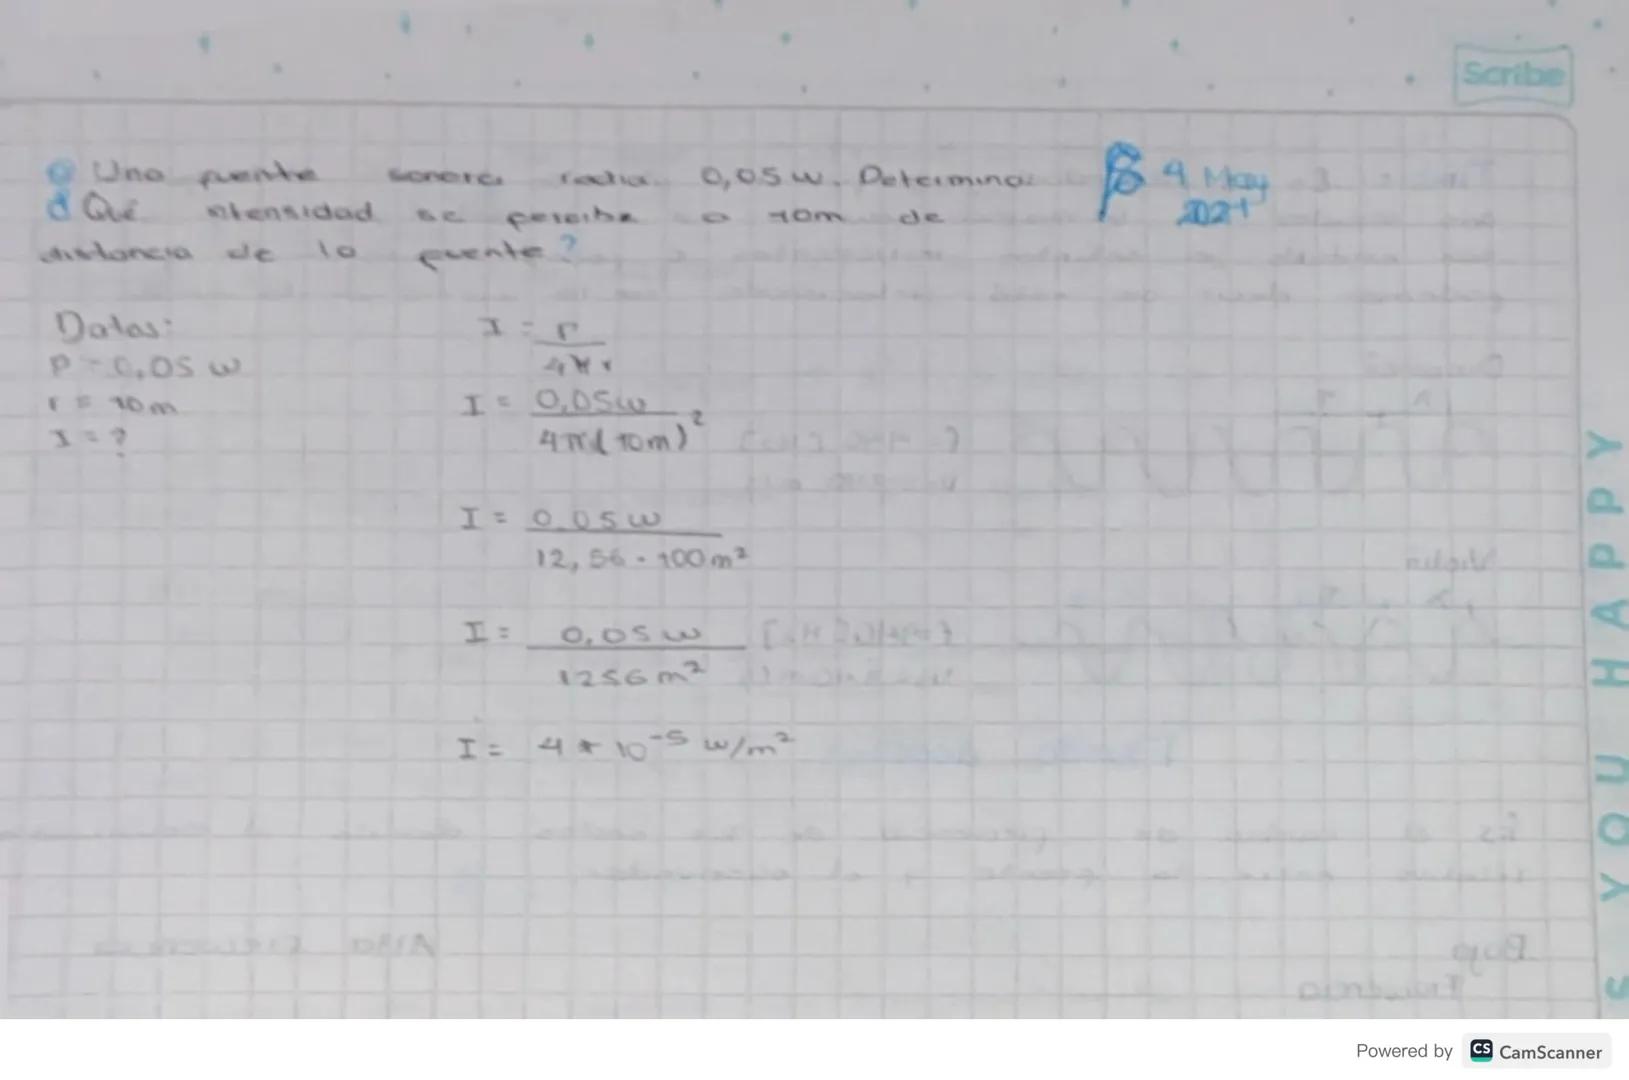 Scribe
Una fuente sonora radia 0,05 w. Determina:
¿Qué intensidad se percibe a 10m de
distancia de la fuente?
4 May
2021
Datos:
P = 0,05 w
r = 10m
I = ?
I = P
4π r
I = 0,05w
4π(10m)²
I = 0.05 w
12,56 · 100 m²
I = 0,05 w
1256 m²
I = 4 * 10⁻⁵ w/m²
S YOU HAPPY
Powered by CS CamScanner